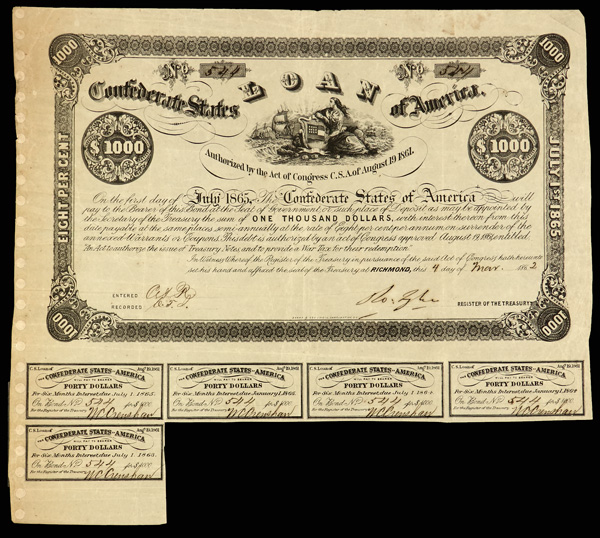 1000
1000
No 544
No 544
LOAN
Confederate States
of America.
$1000
$1000
Authorized by the Act of Congress C.S.A. of August 19 1861.
EIGHT PER CENT
JULY 1st 1865
On the first day of July 1865, The Confederate States of America will
pay to the Bearer of this Bond at the Seat of Government, or such place of Deposit as may be appointed by
the Secretary of the Treasury the sum of ONE THOUSAND DOLLARS, with interest thereon from this
date payable at the same places semi-annually at the rate of Eight per cent per annum on surrender of the
annexed Warrants or Coupons. This debt is authorized by an act of Congress approved August 19, 1861 entitled
"An Act to authorize the issue of Treasury Notes, and to provide a War Tax for their redemption."
In Witness Whereof the Register of the Treasury in pursuance of the said Act of Congress hath hereunto
set his hand and affixed the seal of the Treasury at RICHMOND, this 4 day of Mar. 1862
ENTERED
RECORDED
REGISTER OF THE TREASURY
1000
1000
C.S. Loan of Augt 19, 1861
THE CONFEDERATE STATES OF AMERICA
WILL PAY TO BEARER
FORTY DOLLARS
For Six Months Interest due July 1, 1865.
On Bond No 544 for $1000
For the Register of the Treasury WC Crenshaw
C.S. Loan of Augt 19, 1861
THE CONFEDERATE STATES OF AMERICA
WILL PAY TO BEARER
FORTY DOLLARS
For Six Months Interest due January 1,
On Bond No 544 for $1000
For the Register of the Treasury WC Crenshaw
C.S. Loan of Augt 19, 1861
THE CONFEDERATE STATES OF AMERICA
WILL PAY TO BEARER
FORTY DOLLARS
For Six Months Interest due July 1, 1864
On Bond No 544 for $1000
For the Register of the Treasury WC Crenshaw
C.S. Loan of Augt 19, 1861
THE CONFEDERATE STATES OF AMERICA
WILL PAY TO BEARER
FORTY DOLLARS
For Six Months Interest due January 1, 1864
On Bond No 544 for $1000
For the Register of the Treasury WC Crenshaw
C.S. Loan of Augt 19, 1861
THE CONFEDERATE STATES OF AMERICA
WILL PAY TO BEARER
FORTY DOLLARS
For Six Months Interest due July 1, 1863.
On Bond No 544 for $1000
For the Register of the Treasury WC Crenshaw